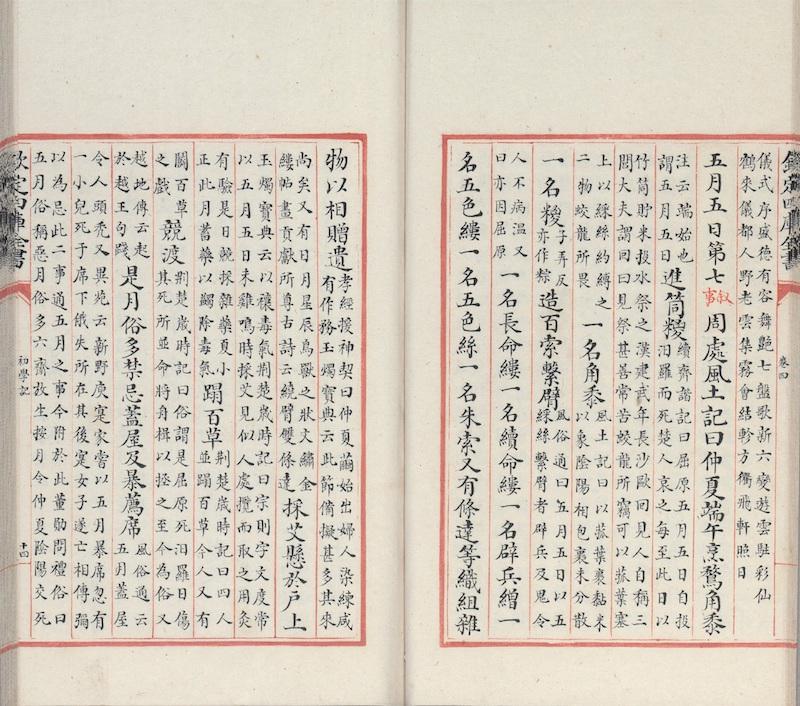 欽定四庫全書
卷四
儀式序盛德有容舞艷七盤歌新六變遊雲駐彩仙
鶴來儀都人野老雲集霧會結軫方衢飛軒照日
五月五日第七 敘事 周處風土記曰仲夏端午烹鶩角黍
注云端始也
謂五月五日
進筒糉
續齊諧記曰屈原五月五日自投
汨羅而死楚人哀之每至此日以
竹筒貯米投水祭之漢建武年長沙歐回見人自稱三
閭大夫謂回曰見祭甚善常苦蛟龍所竊可以菰葉塞
上以綵絲約縛之
二物蛟龍所畏
一名角黍
風土記曰以菰葉裹黏米
以象陰陽相包裹未分散
一名糉
子弄反
亦作粽
造百索繫臂
風俗通曰五月五日以五
綵絲繫臂者辟兵及鬼令
人不病温又
曰亦因屈原
一名長命縷一名續命縷一名辟兵繒一
名五色縷一名五色絲一名朱索又有條達等織組雜
物以相贈遺
孝經援神契曰仲夏繭始出婦人染練咸
有作務玉燭寶典云此節備擬甚多其來
尚矣又有日月星辰鳥獸之狀文繡金
縷帖畫貢獻所尊古詩云繞臂雙條達
採艾懸於户上
玉燭寶典云以禳毒氣荆楚歲時記曰宗則字文度常
以五月五日未雞鳴時採艾見似人處攬而取之用灸
有驗是日競採雜藥夏小
正此月蓄藥以蠲除毒氣
蹋百草
荆楚歲時記曰四人
並蹋百草今人又有
鬭百草
之戲
競渡
荆楚歲時記曰俗謂是屈原死汨羅日傷
其死所並命將舟楫以拯之至今為俗又
越地傳云起
於越王句踐
是月俗多禁忌蓋屋及暴薦席
風俗通云
五月蓋屋
令人頭秃又異苑云新野庾寔家嘗以五月暴席忽有
一小兒死于席下俄失所在其後寔女子遂亡相傳彌
以為忌此二事通五月之事今附於此董勛問禮俗曰
五月俗稱惡月俗多六齋放生按月令仲夏陰陽交死
欽定四庫全書
初學記
十四